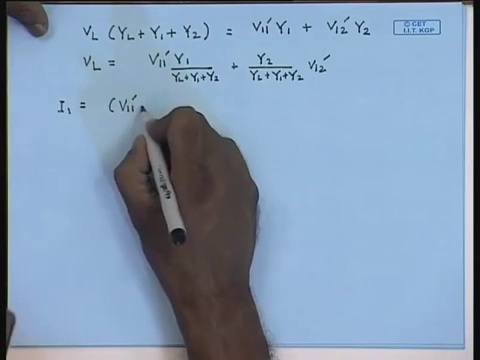 V_L (Y_L + Y_1 + Y_2) = V_11' Y_1 + V_12' Y_2
© CET
I.I.T. KGP
V_L = V_11' Y_1 / (Y_L + Y_1 + Y_2) + Y_2 / (Y_L + Y_1 + Y_2) V_12'
I_1 = (V_11'